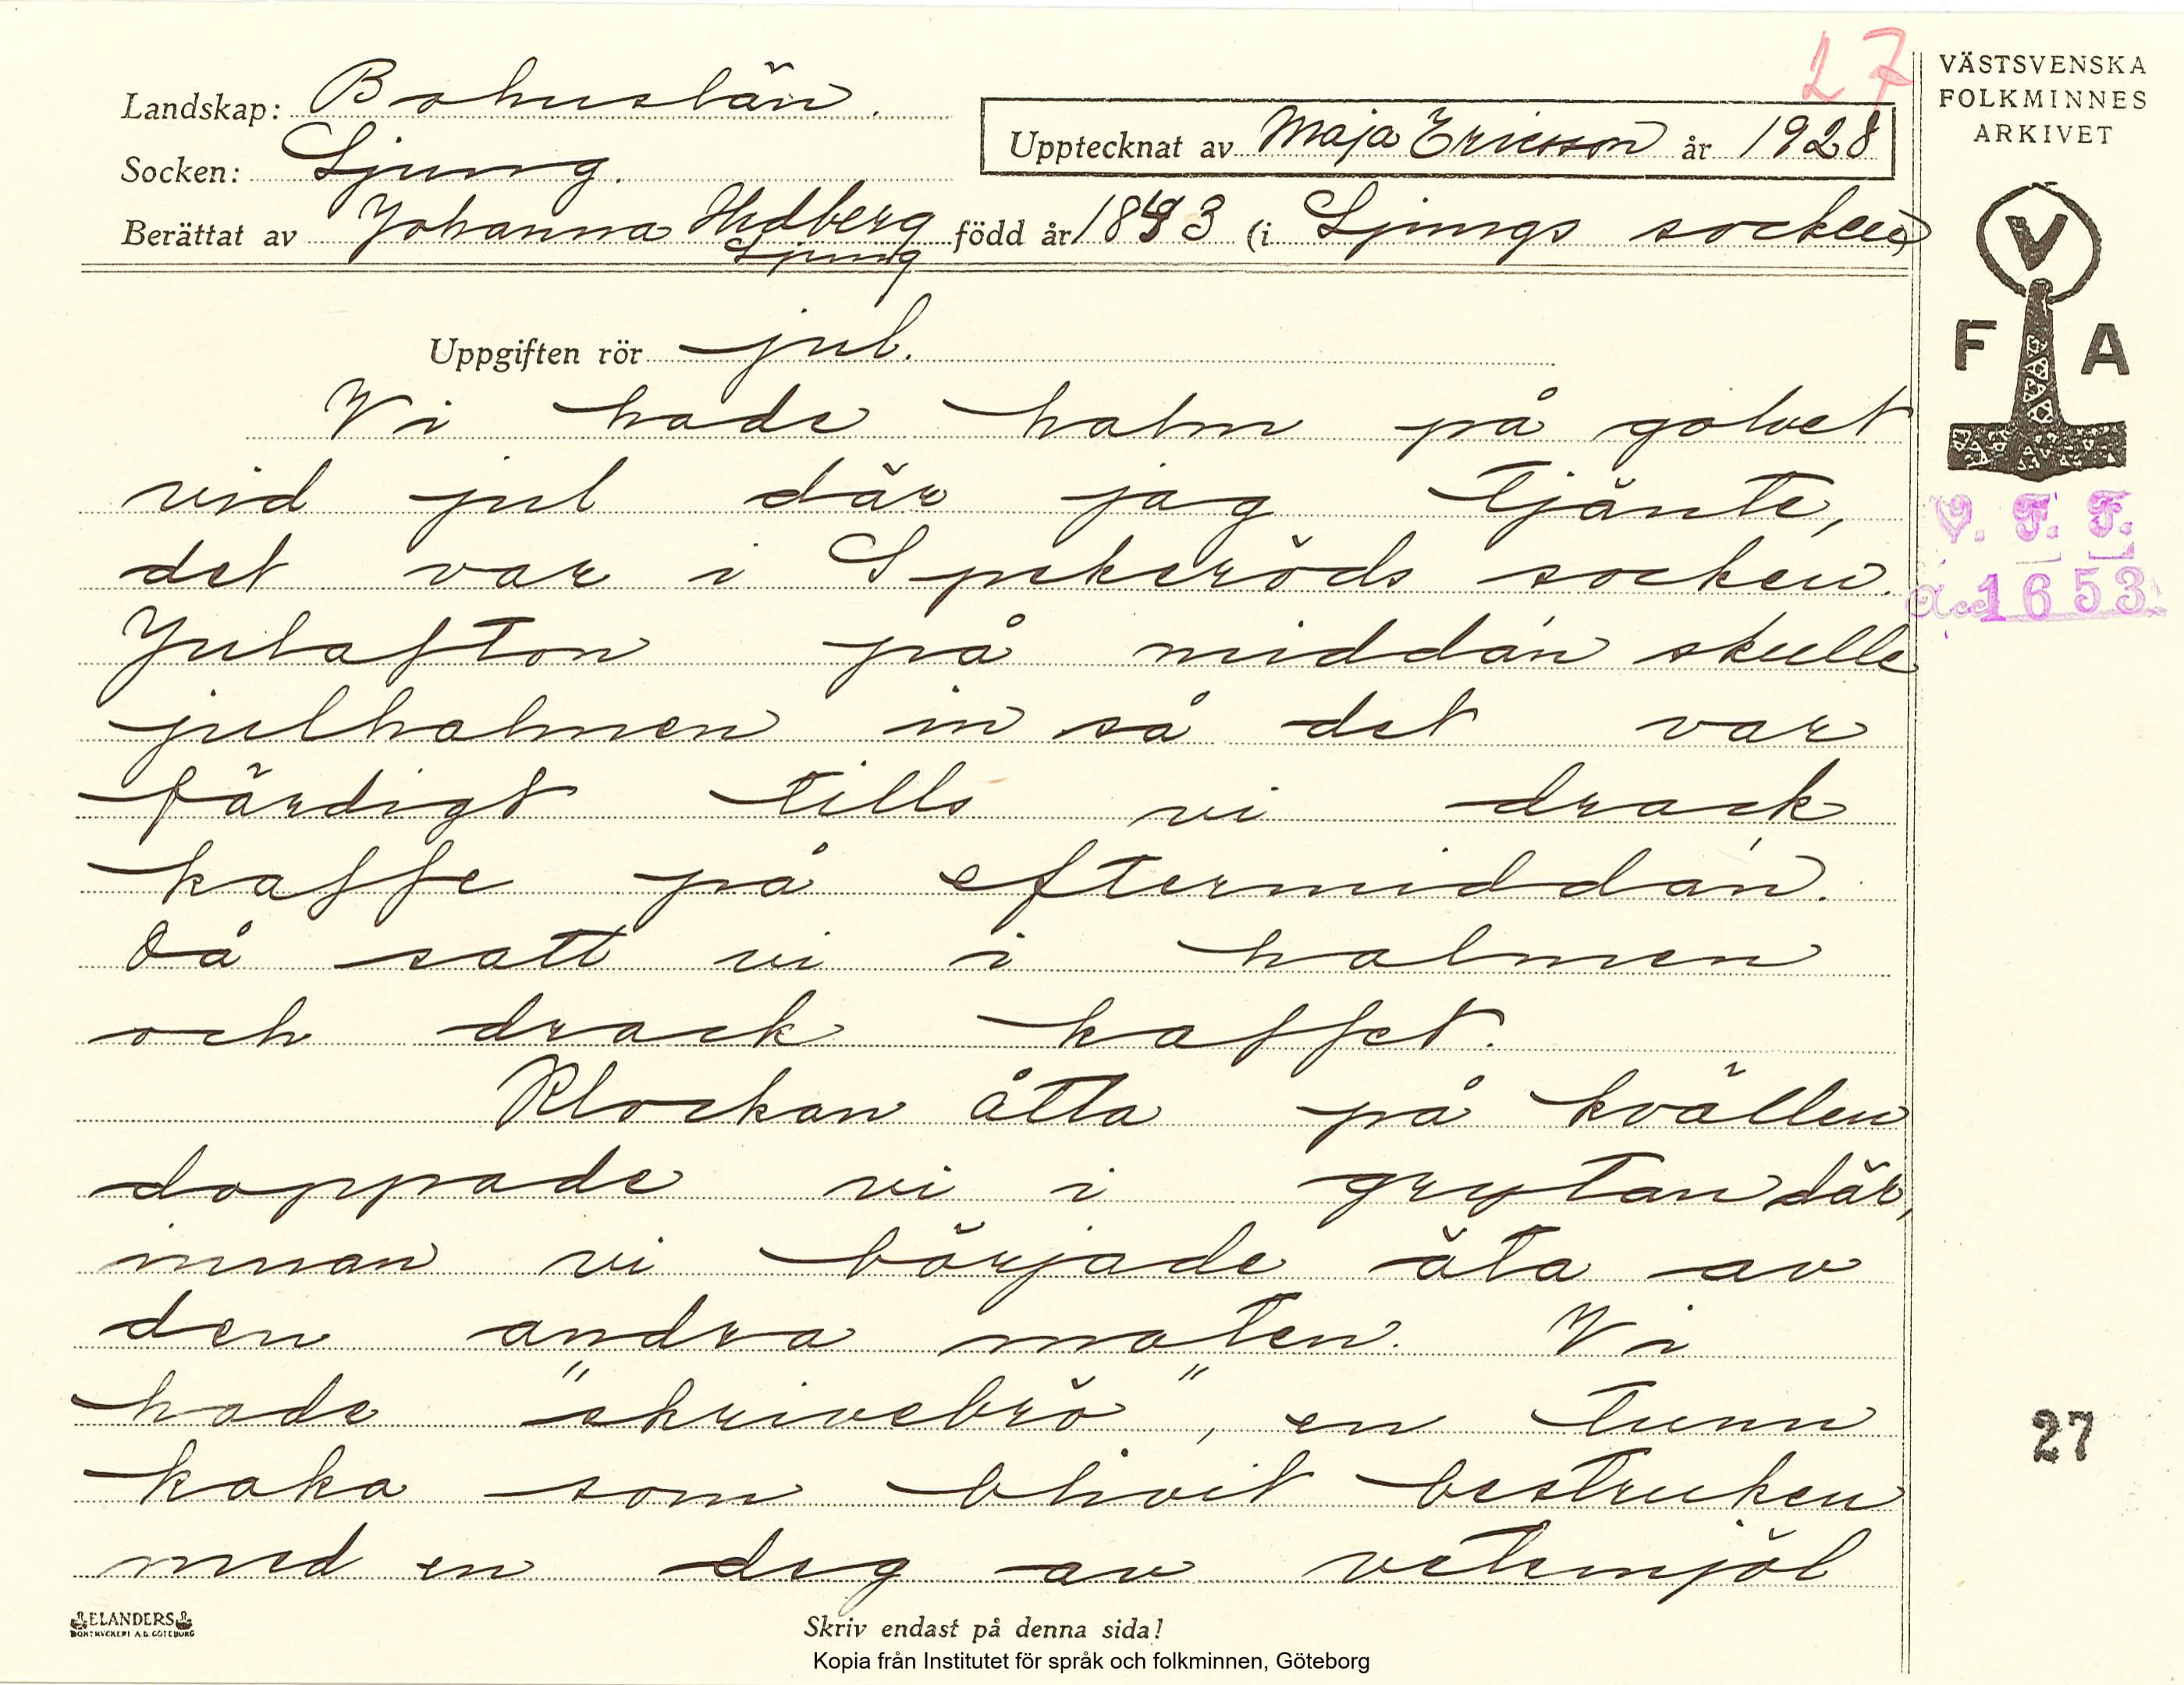 27
Landskap: Bohuslän.
Socken: Ljung.
Upptecknat av Maja Ericsson år 1928
Berättat av Johanna Hedberg född år 1843 (i Ljungs socken)
Ljung
VÄSTSVENSKA
FOLKMINNES
ARKIVET
V
F A
V. F. F.
acc 1653
Uppgiften rör jul.
Vi hade halm på golvet
vid jul där jag tjänte,
det var i Spekeröds socken.
Julafton på middán skulle
julhalmen in så det var
färdigt tills vi drack
kaffe på eftermiddán.
Då satt vi i halmen
och drack kaffet.
Klockan åtta på kvällen
doppade vi i grytan där,
innan vi började äta av
den andra maten. Vi
hade "skrivebrö", en tunn
kaka som blivit bestruken
med en deg av vetemjöl
27
ELANDERS
BOKTRYCKERI A.B. GÖTEBORG
Skriv endast på denna sida!
Kopia från Institutet för språk och folkminnen, Göteborg